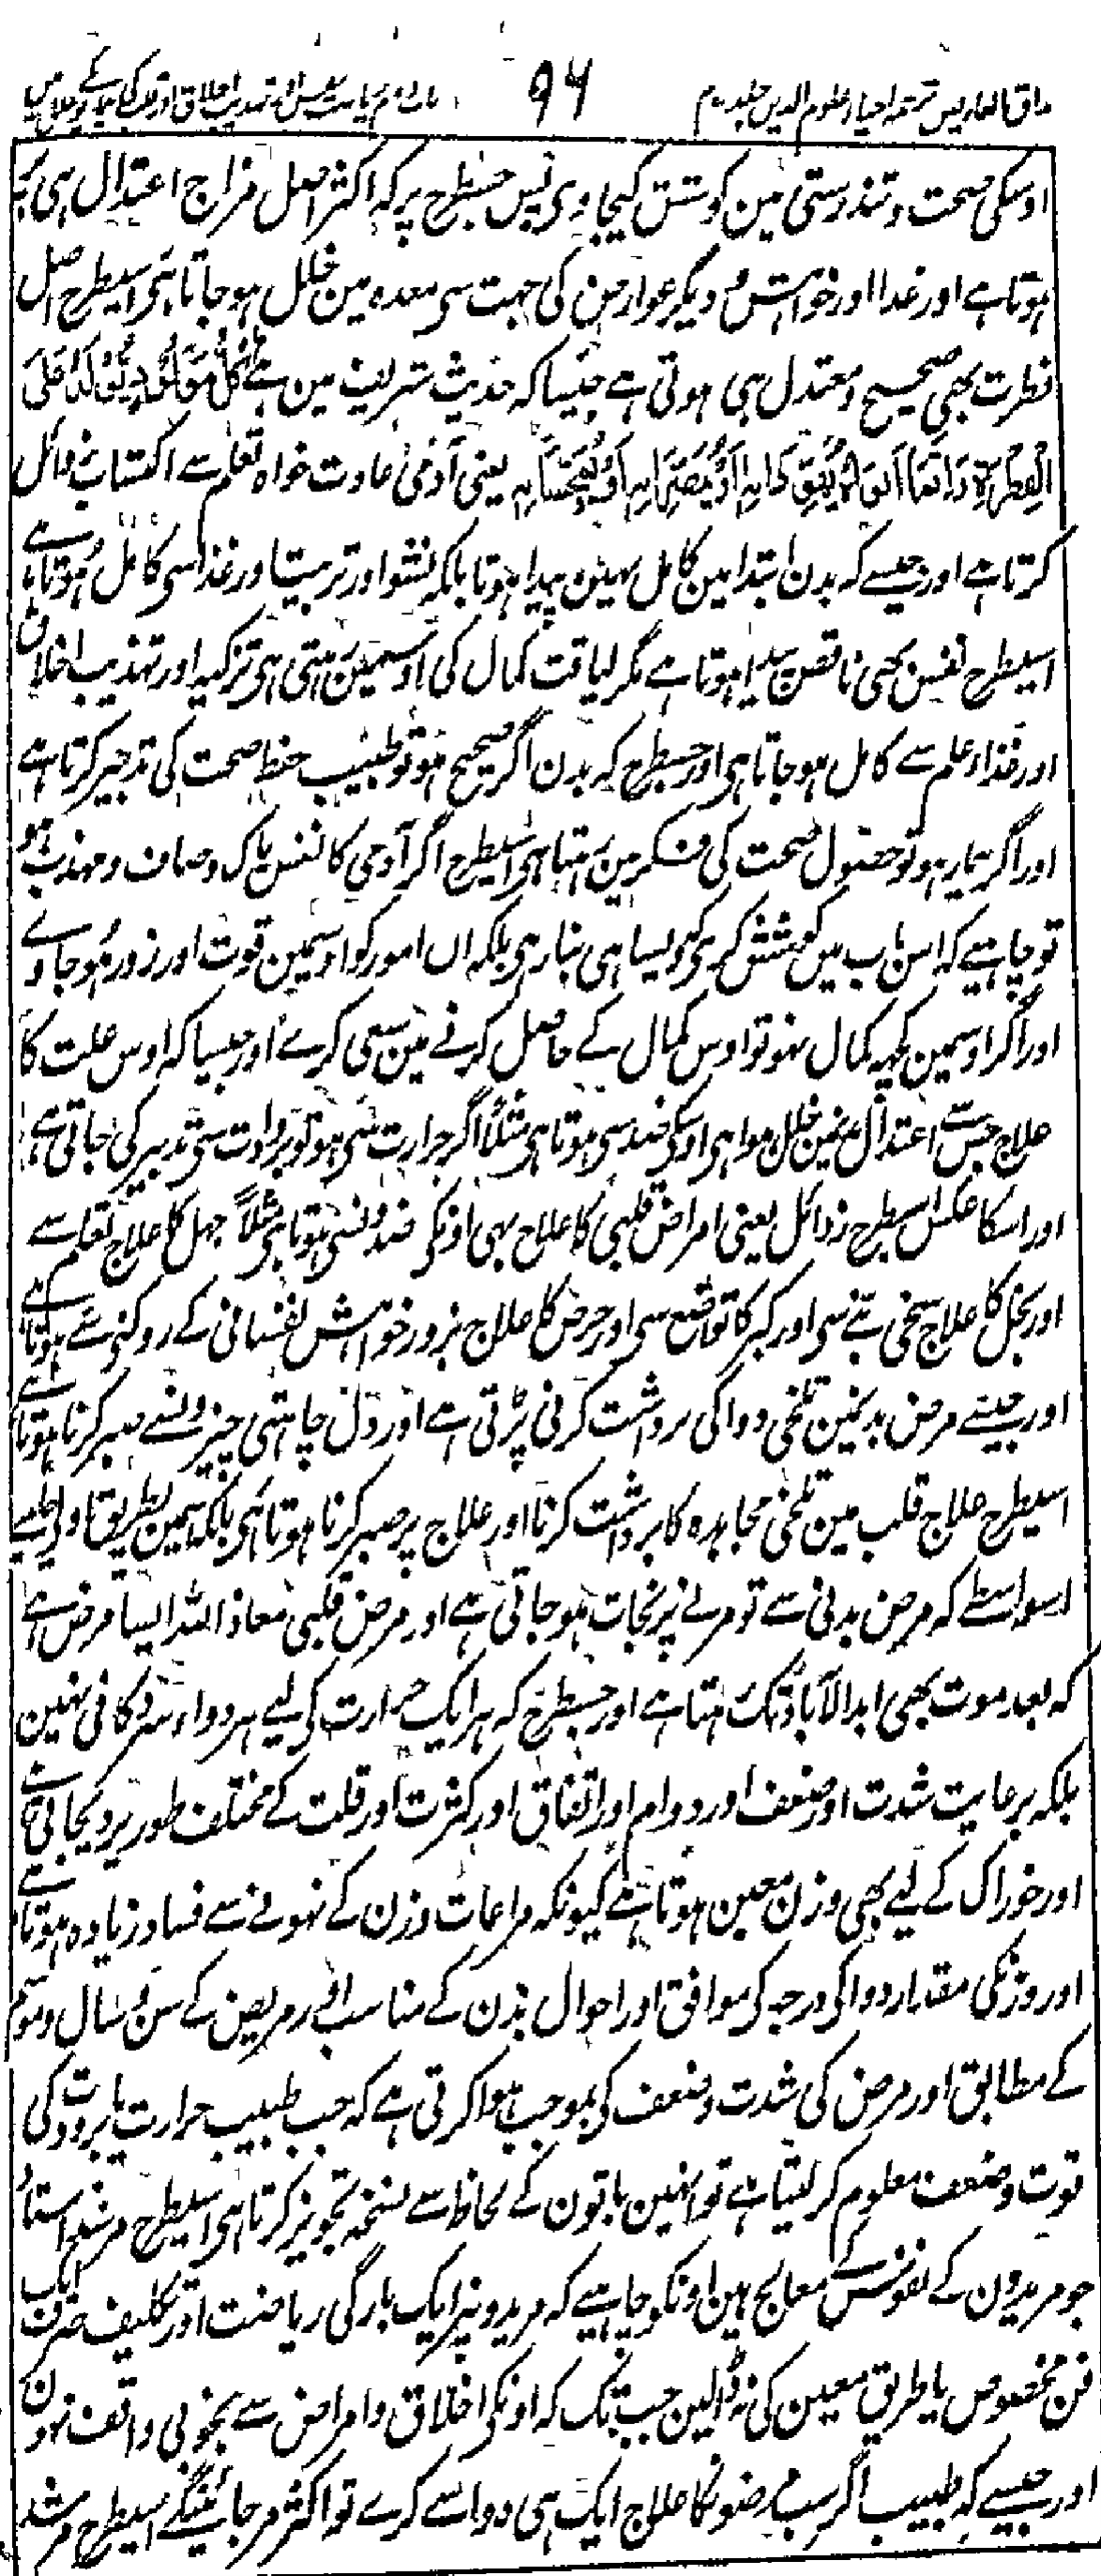 مذاق العارفین ترجمہ احیاء علوم الدین جلد سوم
94
اوسکی صحت و تندرستی مین کوشش کیجاوی پس جسطرح پر کہ اکثر اصل مزاج اعتدال ہی پر
ہوتا ہے اور غذا اور خواہش و دیگر عوارض کی جہت سی معدہ مین خلل ہو جاتا ہی اسیطرح اصل
فطرت بھی صحیح و معتدل ہی ہوتی ہے جیسا کہ حدیث شریف مین ہے کل مولود یولد علی
الفطرۃ وانما ابواہ یہودانہ او ینصرانہ او یمجسانہ یعنی آدمی عادت خواہ تعلم سے اکتساب رذائل
کرتا ہے اور جیسے کہ بدن ابتدا مین کامل نہین پیدا ہوتا بلکہ نشو اور تربیت اور غذا سی کامل ہوتا ہے
اسیطرح نفس بھی ناقص پیدا ہوتا ہے مگر لیاقت کمال کی اوسمین رہتی ہی تزکیہ اور تہذیب اخلاق
اور غذاء علم سے کامل ہو جاتا ہی اور جسطرح کہ بدن اگر صحیح ہو تو طبیب حفظ صحت کی تدبیر کرتا ہے
اور اگر بیمار ہو تو حصول صحت کی فکر مین رہتا ہی اسیطرح اگر آدمی کا نفس پاک و صاف و مہذب ہو
تو چاہیے کہ اس باب میں کوشش کرے کہ ویسا ہی بنا رہی بلکہ ان امور کو اوسمین قوت اور زور ہو جاوے
اور اگر اوسمین کچہہ کمال نہو تو اوس کمال کے حاصل کرنے مین سعی کرے اور جیسا کہ اوس علت کا
علاج جس سے اعتدال مین خلل ہوا ہی اوسکی ضد سی ہوتا ہی مثلاً اگر حرارت سی ہو تو برودت سی تدبیر کی جاتی ہے
اور اسکا عکس اسیطرح رذائل یعنی امراض قلبی کا علاج بہی اونکی ضدونسی ہوتا ہی مثلاً جہل کا علاج تعلم سے
اور بخل کا علاج سخی بننے سی اور کبر کا تواضع سی اور حرص کا علاج بزور خواہش نفسانی کے روکنی سے ہوتا ہے
اور جیسے مرض بدنمین تلخی دوا کی برداشت کرنی پڑتی ہے اور دل چاہتی چیزونسے صبر کرنا ہوتا ہے
اسیطرح علاج قلب مین تلخی مجاہدہ کا برداشت کرنا اور علاج پر صبر کرنا ہوتا ہی بلکہ اسمین بطریق اولی چاہیے
اسواسطے کہ مرض بدنی سے تو مرنے پر نجات ہو جاتی ہے اور مرض قلبی معاذ اللہ ایسا مرض ہے
کہ بعد موت بھی ابد الآباد تک رہتا ہے اور جسطرح کہ ہر ایک حرارت کی لیے ہر دواء سرد کافی نہین
بلکہ برعایت شدت اور ضعف اور دوام اور اتفاق اور کثرت اور قلت کے مختلف طور پر دیجاتی ہے
اور خوراک کے لیے بھی وزن معین ہوتا ہے کیونکہ مراعات وزن کے نہونے سے فساد زیادہ ہوتا ہے
اور وزنکی مقدار دوا کی درجہ کی موافق اور احوال بدن کے مناسب اور مریض کے سن و سال و موسم
کے مطابق اور مرض کی شدت و ضعف کی بموجب ہوا کرتی ہے کہ جب طبیب حرارت یا برودت کی
قوت و ضعف معلوم کر لیتا ہے تو انہین باتون کے لحاظ سے نسخہ تجویز کرتا ہی اسیطرح مرشد استاد
جو مریدون کے نفوس کے معالج ہین اونکو چاہیے کہ مریدونپر ایک بارگی ریاضت اور تکلیف صرف ایک
فن مخصوص یا طریق معین کی نہ ڈالین جب تک کہ اونکی اخلاق و امراض سے بخوبی واقف نہون
اور جیسے کہ طبیب اگر سب مرضونکا علاج ایک ہی دوا سے کرے تو اکثر مر جائینگے اسیطرح مرشد